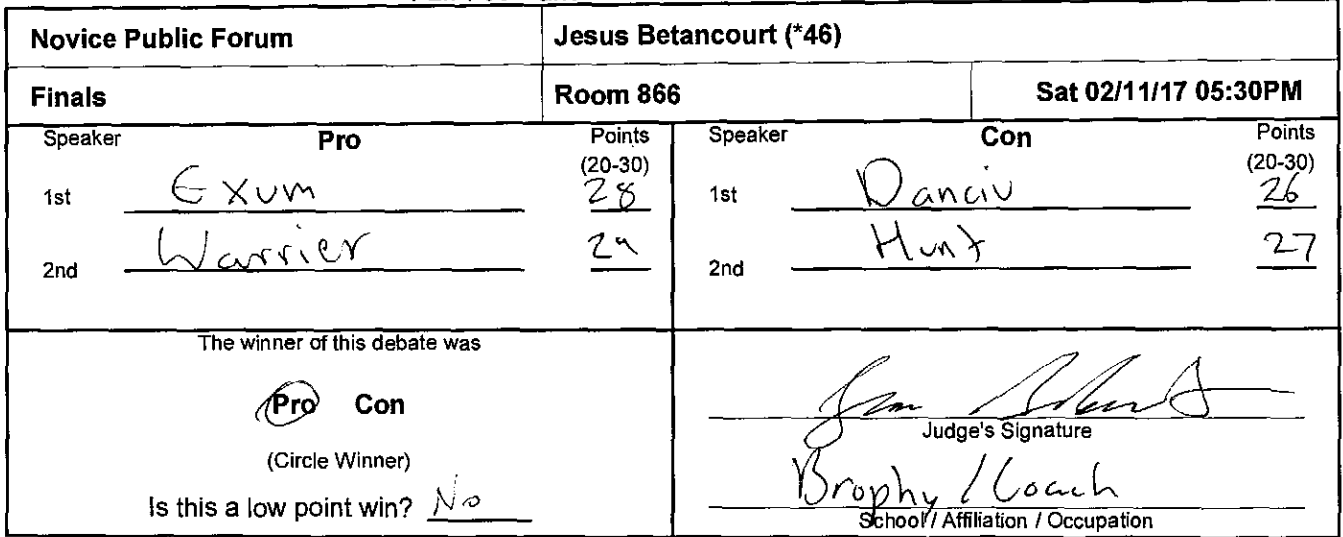 Novice Public Forum Jesus Betancourt (*46)
Finals Room 866 Sat 02/11/17 05:30PM
Speaker Pro Points
(20-30)
1st Exum 28
2nd Warrier 29
Speaker Con Points
(20-30)
1st Danciu 26
2nd Hunt 27
The winner of this debate was
Pro Con
(Circle Winner)
Is this a low point win? No
Judge's Signature
Brophy / Coach
School / Affiliation / Occupation